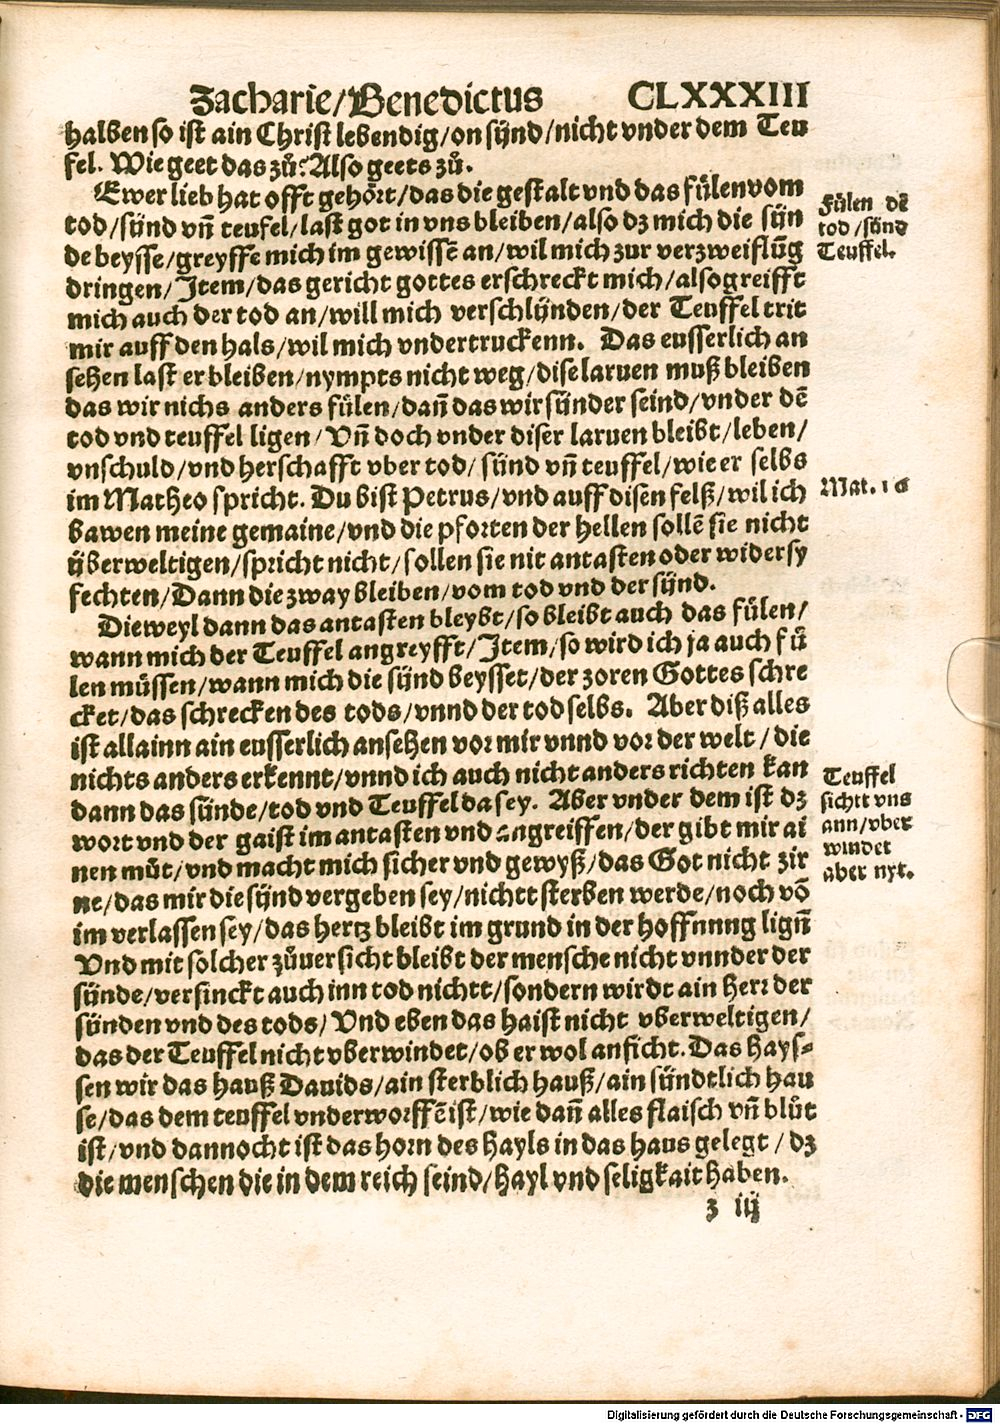 Zacharie/Benedictus CLXXXIII
halben so ist ain Christ lebendig/on sünd/nicht vnder dem Teu
fel. Wie geet das zů? Also geets zů.
Ewer lieb hat offt gehört/das die gestalt vnd das fülen vom
tod/sünd vñ teufel/last got in vns bleiben/also dz mich die sün
de beysse/greyffe mich im gewissẽ an/wil mich zur verzweiflũg
dringen/Item/das gericht gottes erschreckt mich/also greifft
mich auch der tod an/will mich verschlünden/der Teuffel trit
mir auff den hals/wil mich vndertruckenn. Das eusserlich an
sehen last er bleiben/nympts nicht weg/dise laruen muß bleiben
das wir nichs anders fülen/dañ das wir sünder seind/vnder dẽ
tod vnd teuffel ligen/Vñ doch vnder diser laruen bleibt/leben/
vnschuld/vnd herschafft vber tod/sünd vñ teuffel/wie er selbs
im Matheo spricht. Du bist Petrus/vnd auff disen felß/wil ich
bawen meine gemaine/vnd die pforten der hellen sollẽ sie nicht
überweltigen/spricht nicht/sollen sie nit antasten oder wider sy
fechten/Dann die zway bleiben/vom tod vnd der sünd.
Dieweyl dann das antasten bleybt/so bleibt auch das fülen/
wann mich der Teuffel angreyfft/Item/so wird ich ja auch fů
len müssen/wann mich die sünd beysset/der zoren Gottes schre
cket/das schrecken des tods/vnnd der tod selbs. Aber diß alles
ist allainn ain eusserlich ansehen vor mir vnnd vor der welt/die
nichts anders erkennt/vnnd ich auch nicht anders richten kan
dann das sünde/tod vnd Teuffel da sey. Aber vnder dem ist dz
wort vnd der gaist im antasten vnd angreiffen/der gibt mir ai
nen můt/vnd macht mich sicher vnd gewyß/das Got nicht zir
ne/das mir die sünd vergeben sey/nichtt sterben werde/noch võ
im verlassen sey/das hertz bleibt im grund in der hoffnnng ligñ
Vnd mit solcher zůuersicht bleibt der mensche nicht vnnder der
sünde/versinckt auch inn tod nichtt/sondern wirdt ain herr der
sünden vnd des tods/Vnd eben das haist nicht vberweltigen/
das der Teuffel nicht vberwindet/ob er wol anficht. Das hays=
sen wir das hauß Dauids/ain sterblich hauß/ain sündtlich hau
se/das dem teuffel vnderworffẽ ist/wie dañ alles flaisch vñ blůt
ist/vnd dannocht ist das horn des hayls in das haus gelegt/dz
die menschen die in dem reich seind/hayl vnd seligkait haben.
z iij
Fülen dẽ
tod/sünd
Teuffel.
Mat. 16
Teuffel
sichtt vns
ann/vber
windet
aber nyt.
Digitalisierung gefördert durch die Deutsche Forschungsgemeinschaft - DFG